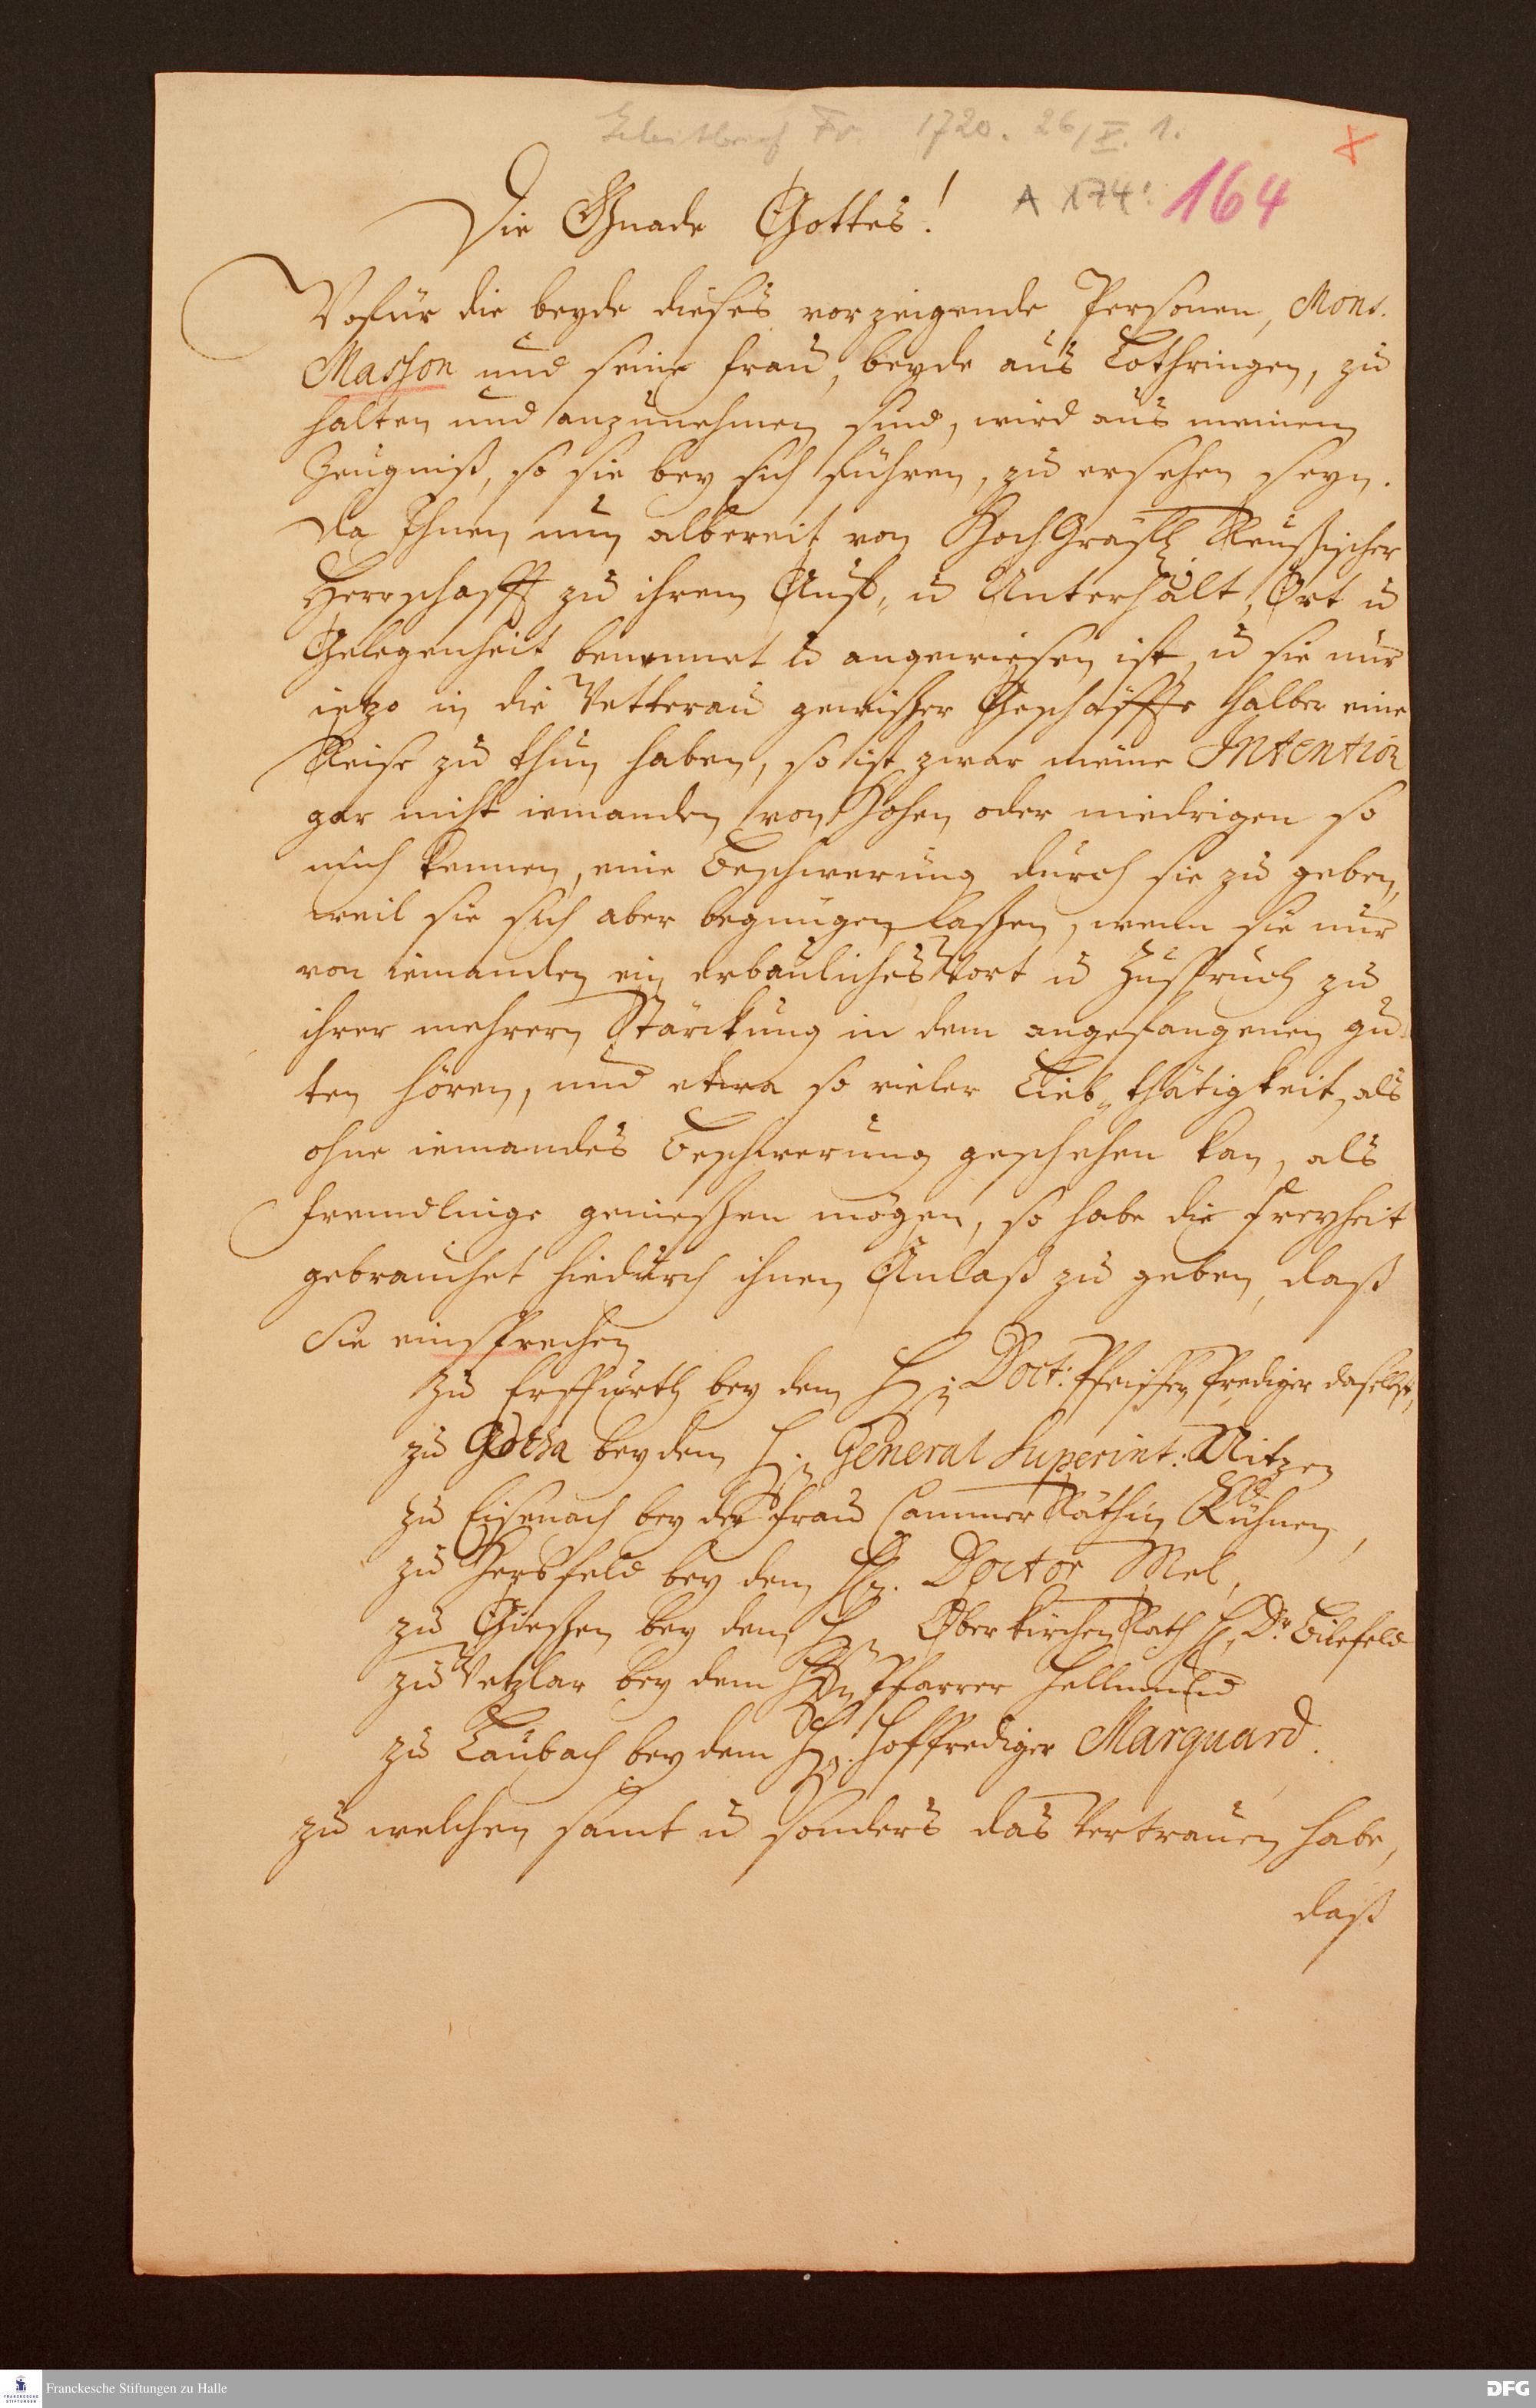 Geleitbrief Fr. 1720. 26/X. 1.
A 174: 164
Die Gnade Gottes!
Wofür die beyde dieses vorzeigende Personen, Mons.
Masson und seine Frau, beyde aus Lothringen, zu
halten und anzunehmen sind, wird aus meinem
Zeugniß, so sie bey sich führen, zu ersehen seyn.
Da Ihnen nun albereit von HochGräfl. Reußischer
Herrschafft zu ihrem Auf- u Unterhalt, Ort u
Gelegenheit benennet u angewiesen ist, u sie nur
ietzo in die Wetterau gewißer Geschäffte halber eine
Reise zu thun haben, so ist zwar meine Intention
gar nicht iemanden von Hohen oder niedrigen so
mich kennen, eine Beschwerung durch sie zu geben,
weil sie sich aber begnügen laßen, wenn sie nur
von iemanden ein erbauliches Wort u Zuspruch zu
ihrer mehrern Stärckung in dem angefangenen gu-
ten hören, und etwa so vieler Lieb-thätigkeit, als
ohne iemandes Beschwerung geschehen kan, als
Fremdlinge genießen mögen, so habe die Freyheit
gebrauchet hiedurch ihnen Anlaß zu geben, daß
Sie einsprechen
zu Erffurth bey dem H. Doct: Pfeiffer, Prediger daselbst,
zu Gotha bey dem H. General Superint: Nitzen
zu Eisenach bey der Frau CammerRäthin Kühnen,
zu Hersfeld bey dem Hn. Doctor Mel,
zu Gießen bey dem Hn OberkirchenRath H. Dr. Bilefeld
zu Wetzlar bey dem Hn Pfarrer Hellmund
zu Laubach bey dem Hn. Hoffprediger Marquard.
zu welchen samt u sonders das Vertrauen habe,
daß
Franckesche Stiftungen zu Halle
DFG